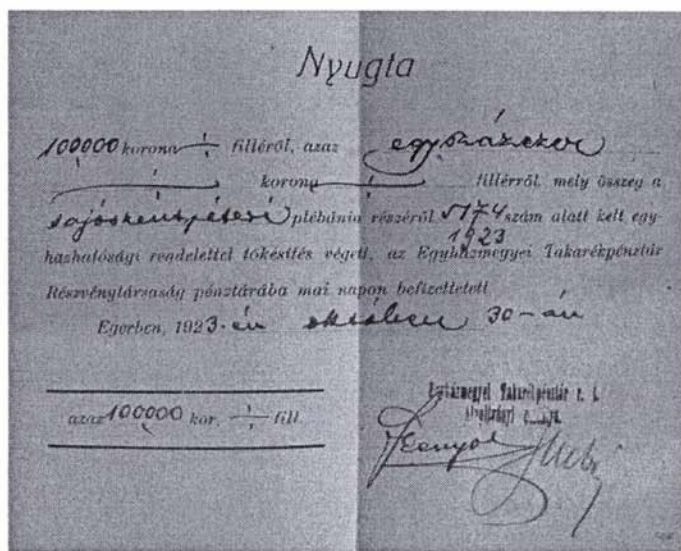 Nyugta
100000 korona ÷ filléről, azaz egyszázezer
korona ÷ fillérről, mely összeg a
sajószentpéteri plébánia részéről 5174 szám alatt kelt egy-
1923
házhatósági rendelettel tőkésítés végett, az Egyházmegyei Takarékpénztár
Részvénytársaság pénztárába mai napon befizettetett.
Egerben, 1923-én október 30-án
azaz 100000 kor. ÷ fill.
Egyházmegyei Takarékpénztár r. t.